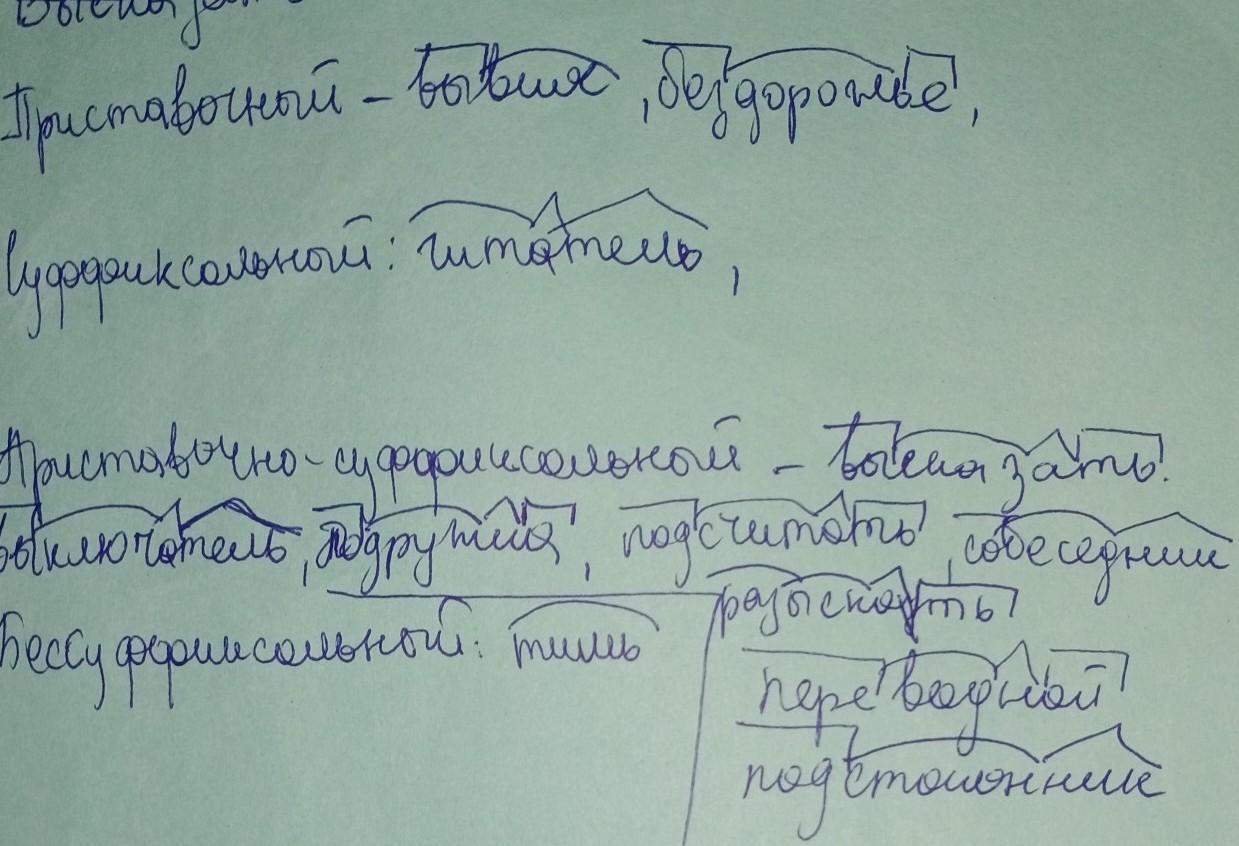 Приставочный – вывих, бездорожье,
Суффиксальный: читатель,
Приставочно-суффиксальный – высказать.
выключатель, подружка, подсчитать, собеседник
разыскать
Бессуффиксальный: тишь
переводной
подстаканник